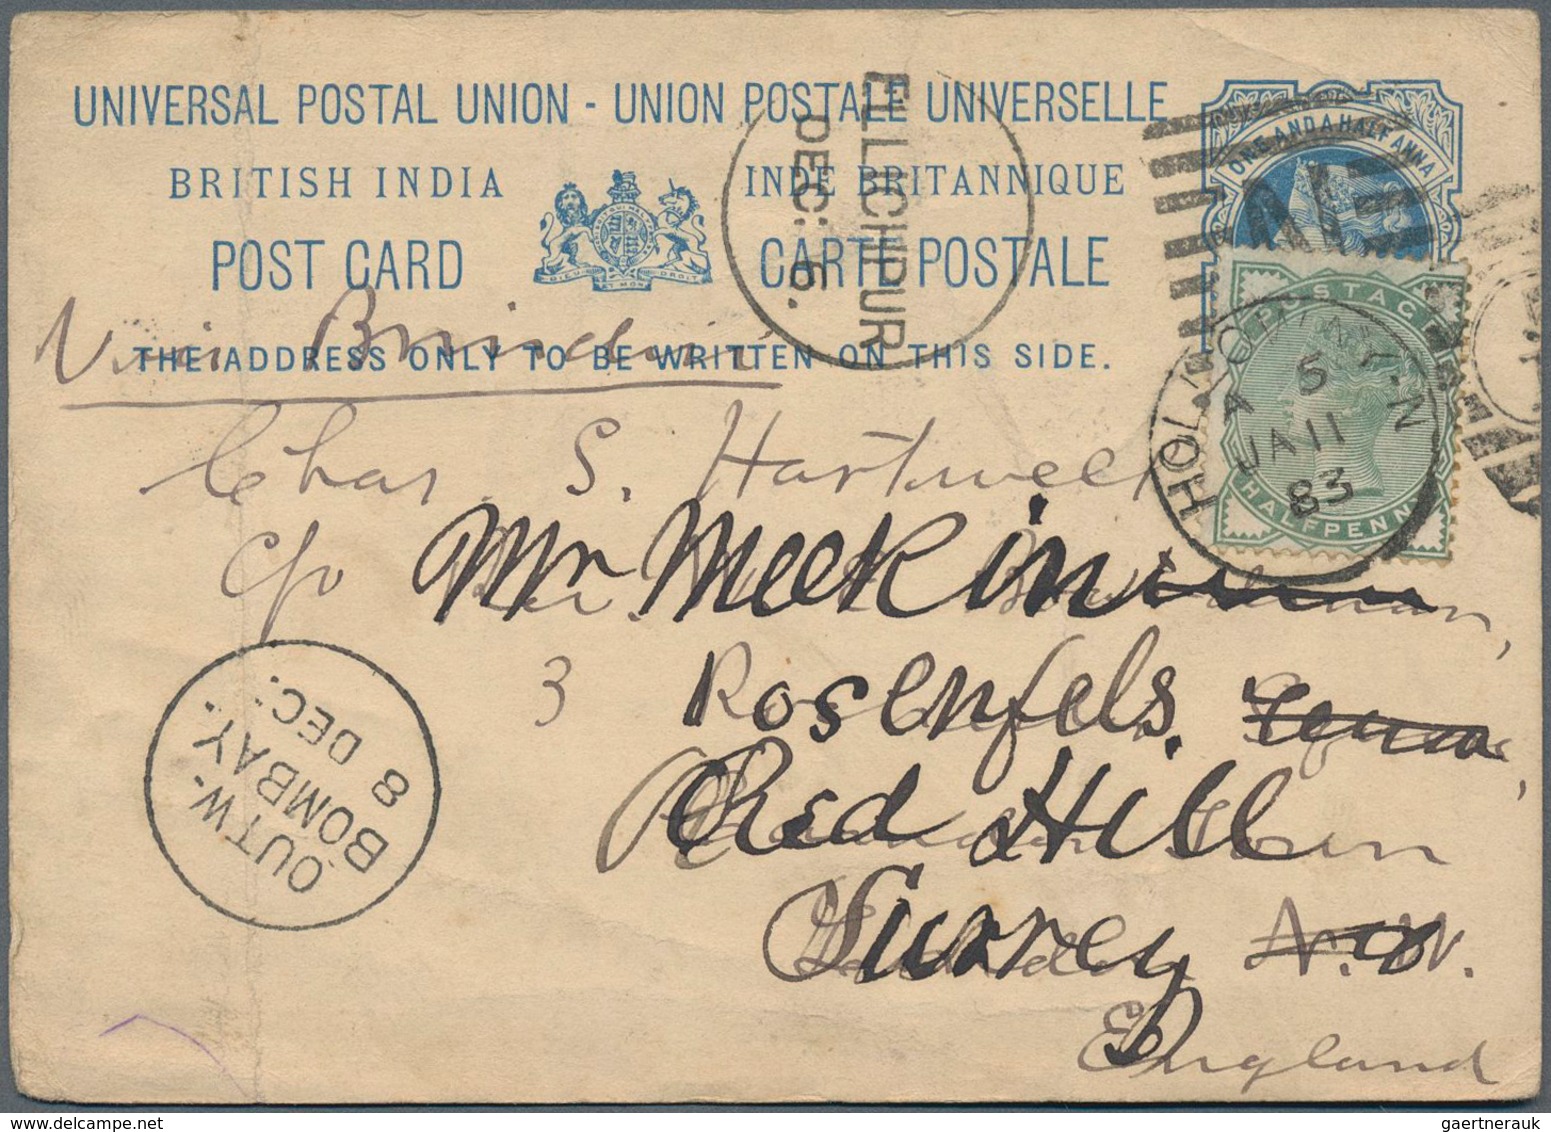 UNIVERSAL POSTAL UNION - UNION POSTALE UNIVERSELLE
BRITISH INDIA INDE BRITANNIQUE
POST CARD CARTE POSTALE
DIEU ET MON DROIT
THE ADDRESS ONLY TO BE WRITTEN ON THIS SIDE.
ONE AND A HALF ANNA
ELLICHPUR
DEC: 6.
POSTAGE
HALFPENNY
HOLLOWAY-N
A 5
JA 11
83
Via Brindisi
Chas. S. Hartwell
c/o Mr Meekin
3 Rosenfels.
Red Hill
Surrey N.W.
England
OUTW-
BOMBAY.
8 DEC:
gaertnerauk / delcampe.net